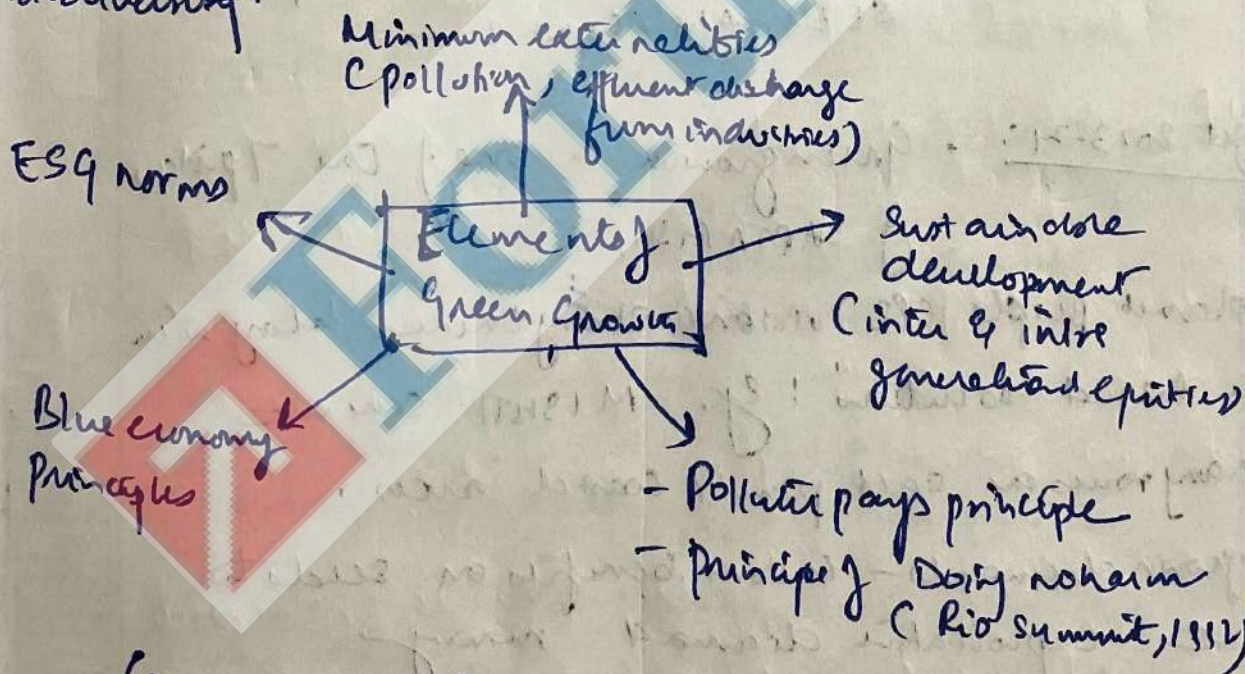 Minimum externalities
(pollution, effluent discharge
from industries)
ESG norms
Elements of
Green Growth
Sustainable
development
(inter & intra
generational equities)
Blue economy
Principles
- Polluter pays principle
- Principle of Doing no harm
(Rio summit, 1992)